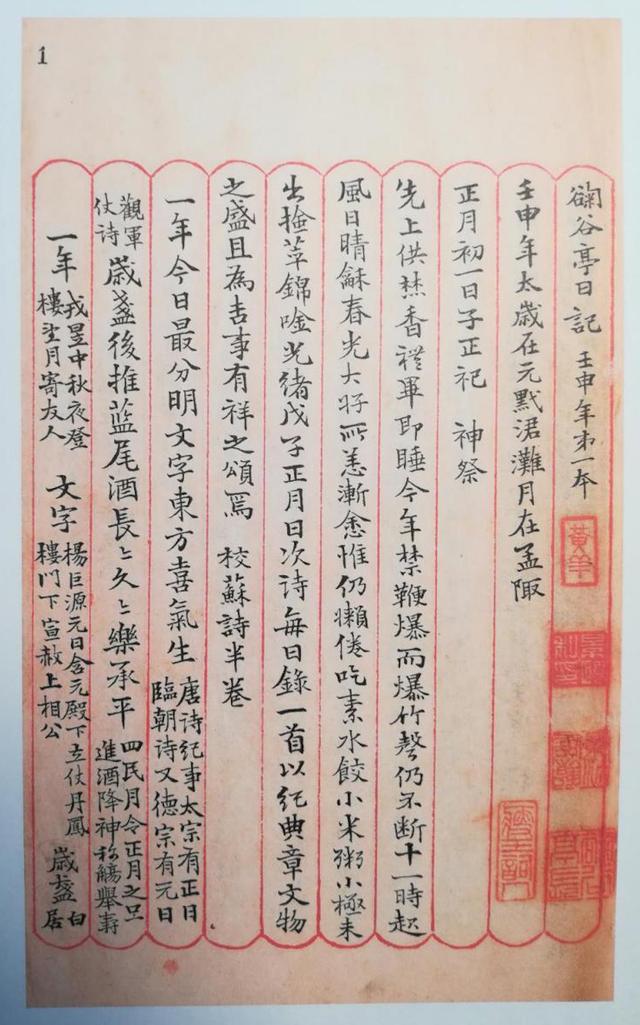 1
籋谷亭日記 壬申年第一本
黃羊
壬申年太歲在元黓涒灘月在孟陬
正月初一日子正祀 神祭
先上供焚香禮畢即睡今年禁鞭爆而爆竹聲仍不斷十一時起
風日晴龢春光大好所恙漸愈惟仍懶倦吃素水餃小米粥小極未
出撿萃錦唫光緒戊子正月日次詩每日錄一首以紀典章文物
之盛且為吉事有祥之頌焉 校蘇詩半卷
一年今日最分明文字東方喜氣生 唐詩紀事太宗有正日
臨朝詩又德宗有元日
觀軍
仗詩 歲盞後推藍尾酒長〻久〻樂承平 四民月令正月之旦
進酒降神称觴舉壽
一年 戎昱中秋夜登
樓望月寄友人 文字 楊巨源元日含元殿下立仗丹鳳
樓門下宣赦上相公 歲盞 白
居